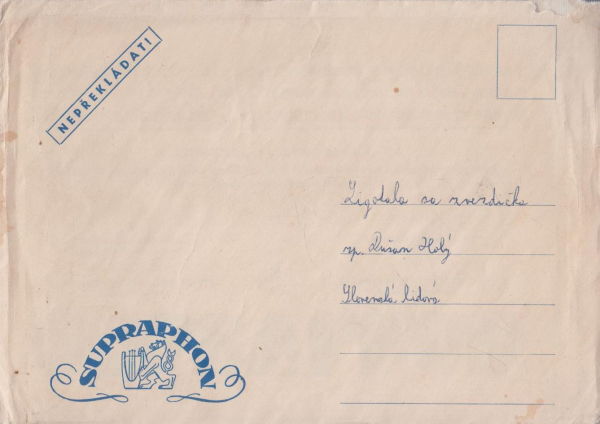 NEPŘEKLÁDATI
Ligotala sa zvezdička
zp. Dušan Holý
Slovenská lidová
SUPRAPHON